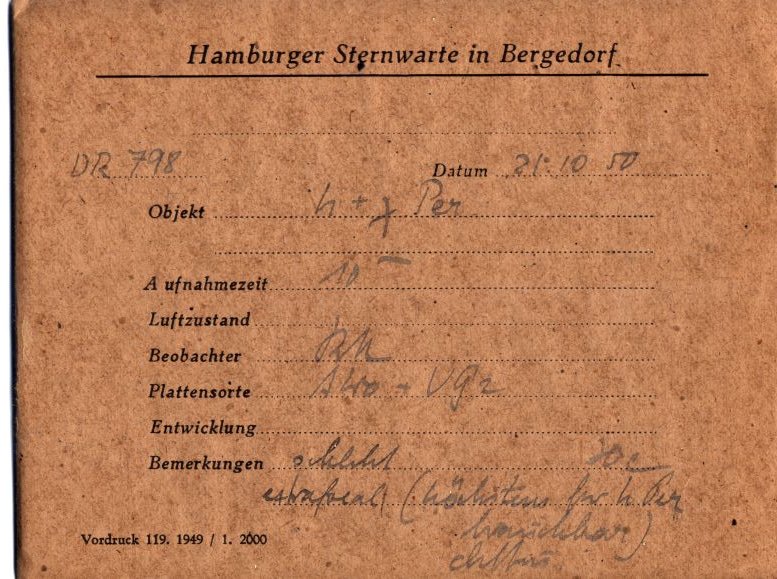 Hamburger Sternwarte in Bergedorf
DR 798 Datum 21. 10 50
Objekt h + χ Per
Aufnahmezeit 10
Luftzustand
Beobachter
Plattensorte + VG2
Entwicklung
Bemerkungen schlecht
extrafocal (höchstens für h Per
brauchbar)
Vordruck 119. 1949 / 1. 2000